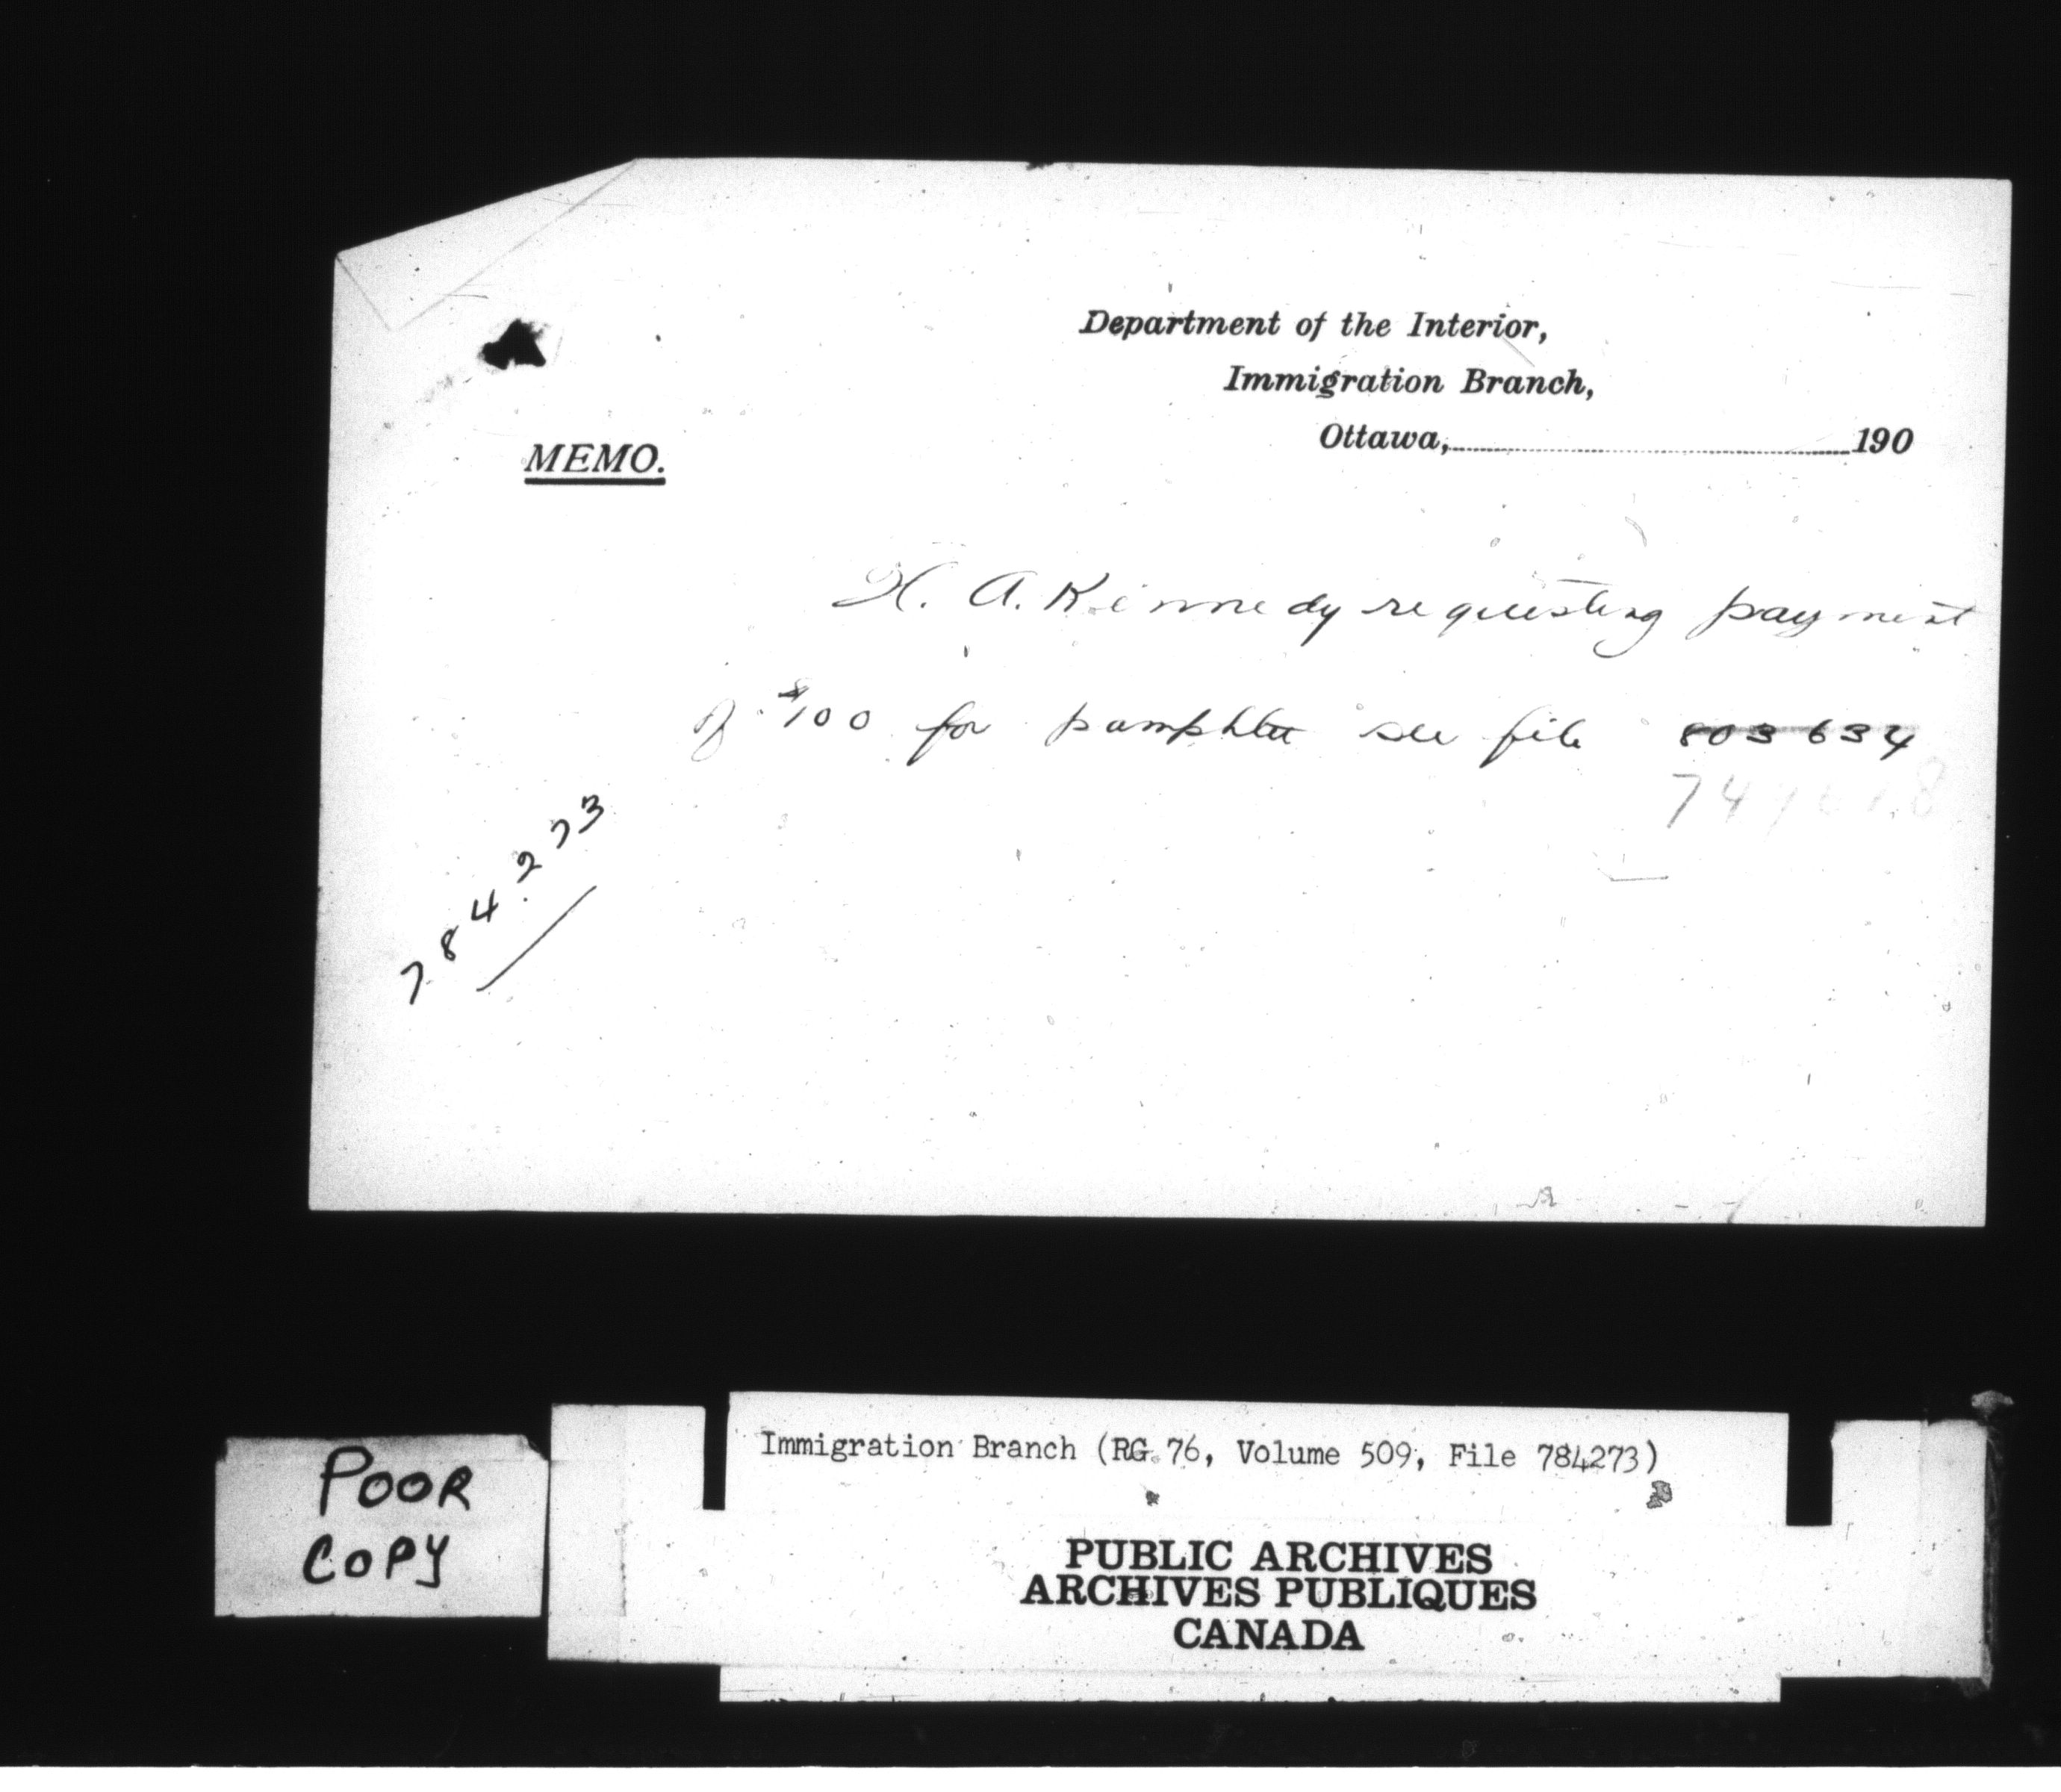 Department of the Interior,
Immigration Branch,
Ottawa, 190
MEMO.
H. A. Kennedy requesting payment
of $100 for pamphlet see file 803634
784273
Immigration Branch (RG 76, Volume 509, File 784273)
POOR
COPY
PUBLIC ARCHIVES
ARCHIVES PUBLIQUES
CANADA